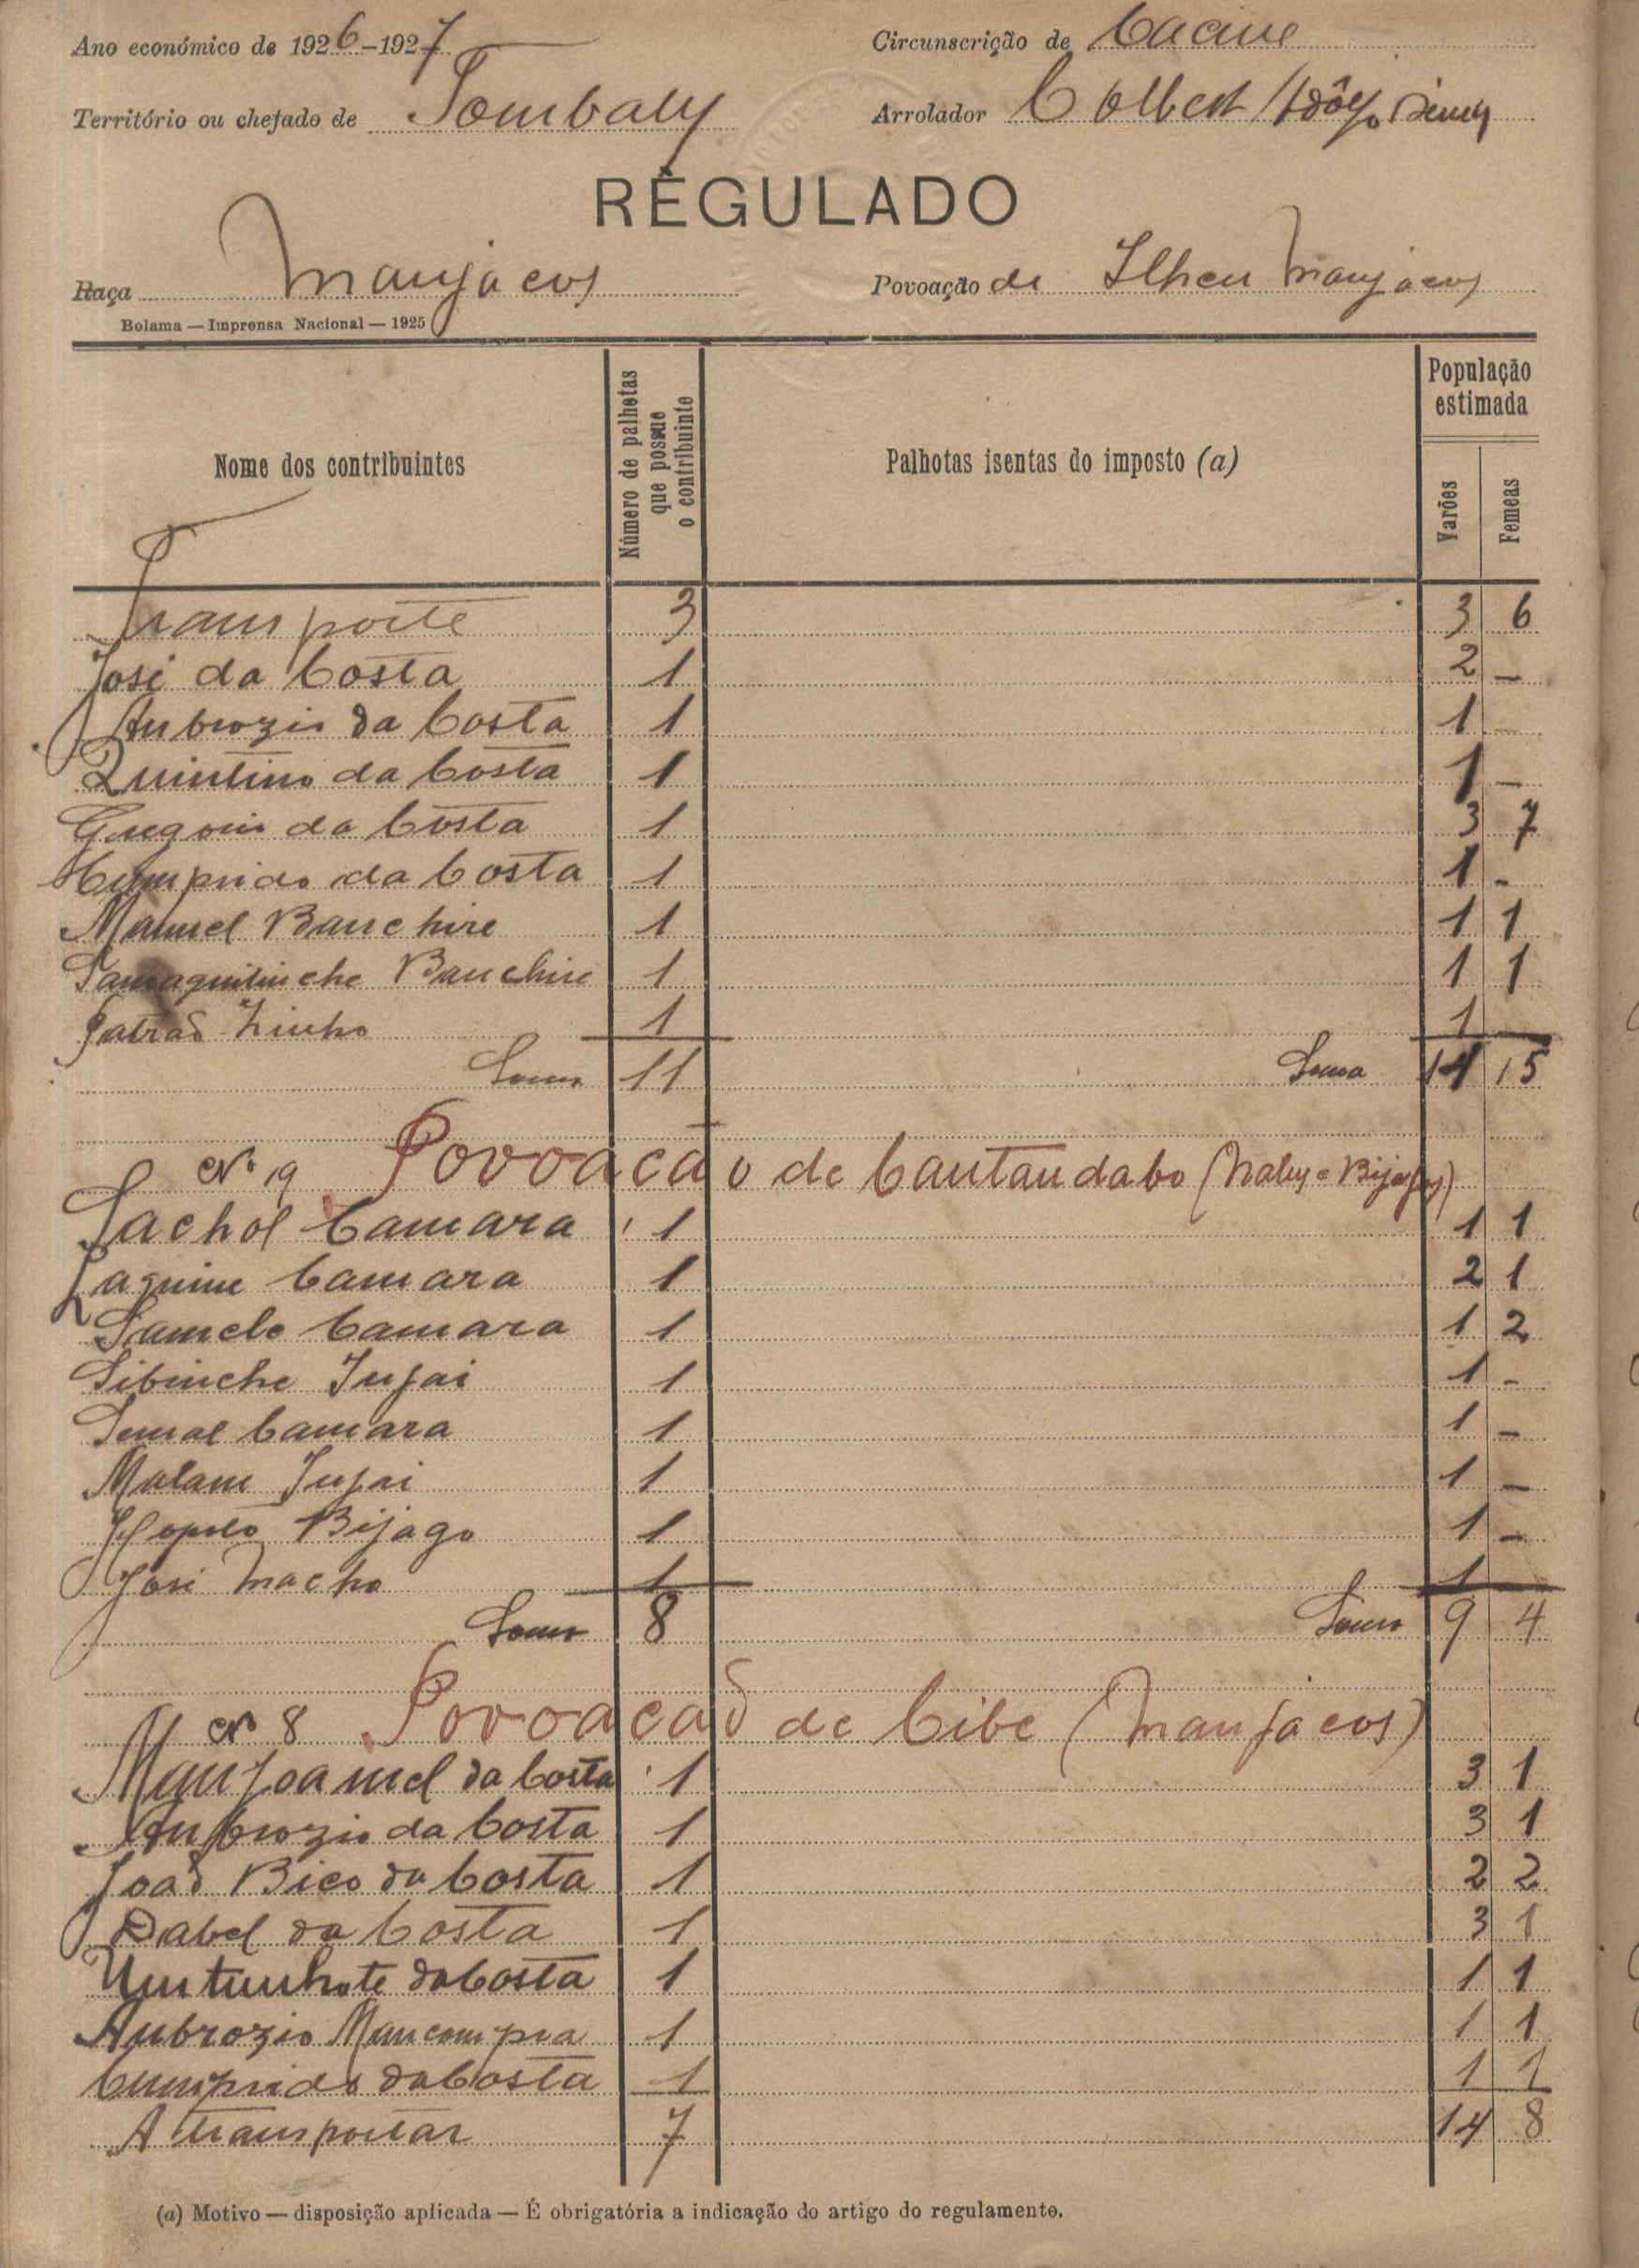 Ano económico de 1926-1927 Circunscrição de Cacine
Território ou chefado de Tombaly Arrolador Colbert
RÉGULADO
Raça Manjacos Povoação de Ilheu Manjacos
Bolama — Imprensa Nacional — 1925
Nome dos contribuintes Número de palhotas que possue o contribuinte Palhotas isentas do imposto (a) População estimada Varões Femeas
Transporte 3 3 6
José da Costa 1 2 —
Anbrozio da Costa 1 1 —
Quintino da Costa 1 1 —
Gregorio da Costa 1 3 7
Cumprido da Costa 1 1 -
Manuel Banchire 1 1 1
Banchire 1 1 1
Patrão Zinho 1 1 —
Soma 11 Soma 14 15
Nº 9 Povoacão de Cantandabo (Nalus e Bijagos)
Lachol Camara 1 1 1
Laguine Camara 1 2 1
Samelo Camara 1 1 2
Sibinche Jufai 1 1 -
Semal Camara 1 1 —
Malam Jufai 1 1 —
Bijago 1 1 —
José Macho 1 1
Soma 8 Soma 9 4
Nº 8 Povoacão de Cibe (Manjacos)
Manjoamel da Costa 1 3 1
Anbrozio da Costa 1 3 1
João Bico da Costa 1 2 2
Dabel da Costa 1 3 1
Untunhate da Costa 1 1 1
Anbrozio Mancompra 1 1 1
Cumprido da Costa 1 1 1
A transportar 7 14 8
(a) Motivo — disposição aplicada — É obrigatória a indicação do artigo do regulamento.